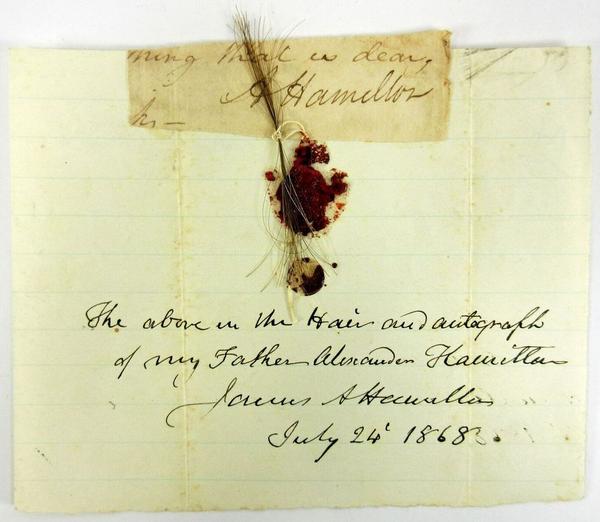 ning that is dear,
A Hamilton
his—
The above is the Hair and autograph
of my Father Alexander Hamilton
James A Hamilton
July 24' 1868.